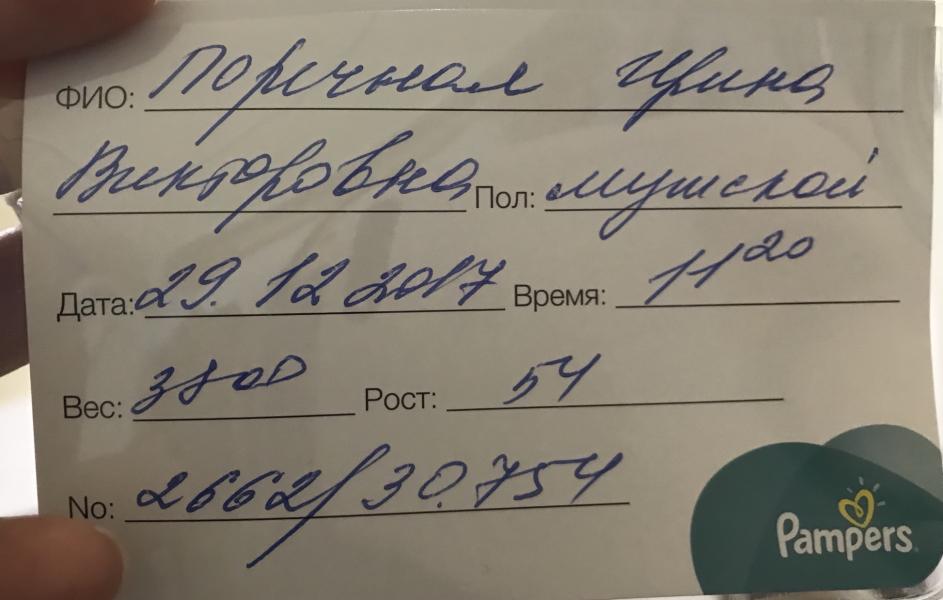 ФИО: Поречная Ирина
Викторовна Пол: мужской
Дата: 29. 12 2017 Время: 11 20
Вес: 3800 Рост: 54
No: 2662/30.754
Pampers